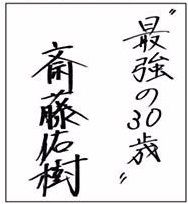 "最強の30歳"
斎藤佑樹